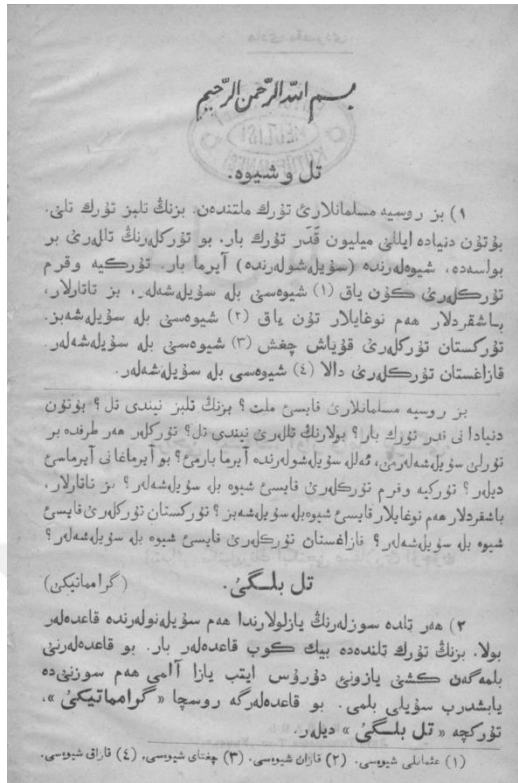 بسم الله الرّحمن الرّحيم
تل و شيوه.
١) بز روسيه مسلمانلارىٔ تۇرك ملتندەن. بزنڭ تلبز تۇرك تلى.
بۇتۇن دنياده ايللى ميليون قَدَر تۇرك بار. بو تۇركلەرنڭ تللرىٔ بر
بولسەدە، شيوەلەرندە (سۇيلەشولەرندە) آيرما بار. تۇركيە وقرم
تۇركلەرىٔ كۇن ياق (١) شيوەسىٔ بلە سۇيلەشەلەر، بز تاتارلار،
باشقردلار هەم نوغايلار تۇن ياق (٢) شيوەسىٔ بلە سۇيلەشەبز.
تۇركستان تۇركلەرىٔ قۇياش چغش (٣) شيوەسىٔ بلە سۇيلەشەلەر.
قازاغستان تۇركلەرىٔ دالا (٤) شيوەسى بلە سۇيلەشەلەر.
بز روسيە مسلمانلارىٔ قايسىٔ ملت؟ بزنڭ تلبز نيندى تل؟ بۇتۇن
دنيادا نى قدر تۇرك بار؟ بولارنڭ تللەرىٔ نيندى تل؟ تۇركلەر هەر طرفدە بر
تۇرلى سۇيلەشەلەرمىٔ، ئەللە سۇيلەشولەرندە آيرما بارمىٔ؟ بو آيرماغا نى آيرماسىٔ
ديلەر؟ تۇركيە وقرم تۇركلەرىٔ قايسىٔ شيوە بلە سۇيلەشەلەر؟ بز تاتارلار،
باشقردلار هەم نوغايلار قايسىٔ شيوەبلە سۇيلەشەبز؟ تۇركستان تۇركلەرىٔ قايسىٔ
شيوە بلە سۇيلەشەلەر؟ قازاغستان تۇركلەرىٔ قايسىٔ شيوە بلە سۇيلەشەلەر؟
تل بلـگىٔ. (گرامماتيكن)
٢) هەر تلدە سوزلەرنڭ يازلولارندا هەم سۇيلەنولەرندە قاعدەلەر
بولا. بزنڭ تۇرك تلندەدە بيك كوب قاعدەلەر بار. بو قاعدەلەرنى
بلمەگەن كشىٔ يازونىٔ دۇرۇس ايتب يازا آلمى هەم سوزنىدە
يابشدرب سۇيلى بلمى. بو قاعدەلەرگە روسچا «گرامماتيكىٔ»،
تۇركچە «تل بلـگىٔ» ديلەر.
(١) عثمانلى شيوەسى. (٢) قازان شيوەسى. (٣) چغتاى شيوەسى. (٤) قازاق شيوەسى.